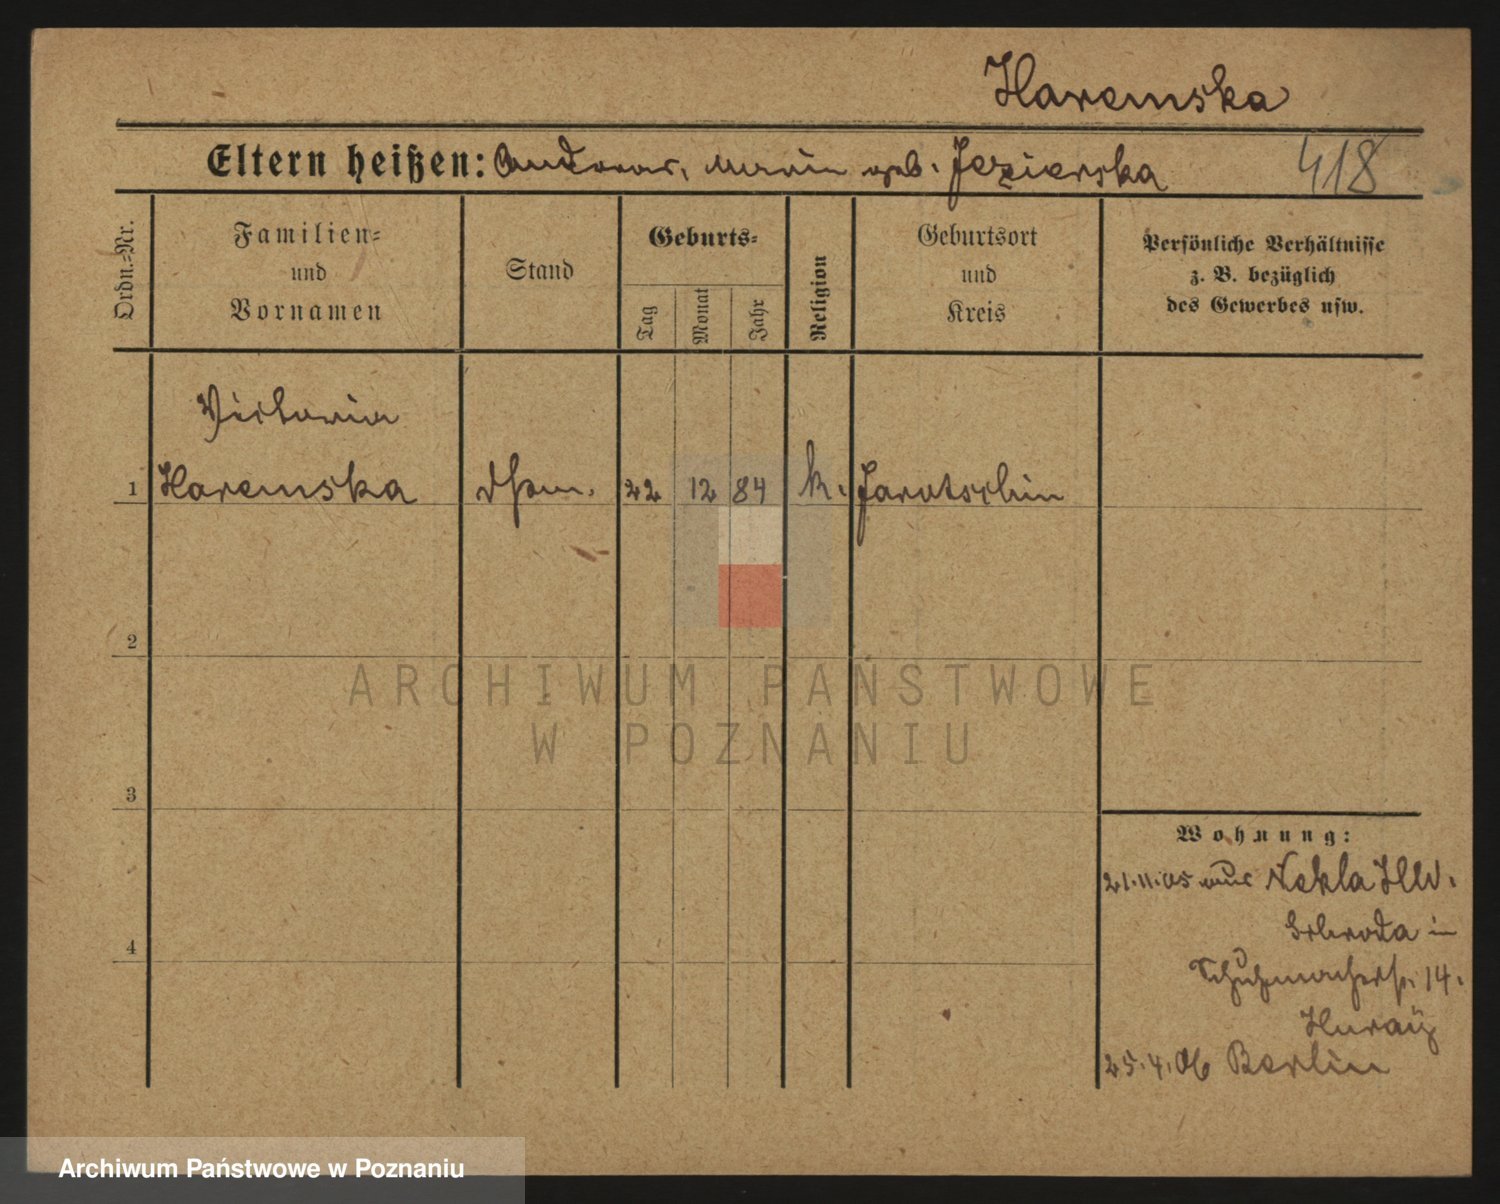 Haremska
Eltern heißen: Andreas, Maria geb. Jezierska 418
Ordn.-Nr.
Familien- und Vornamen
Stand
Geburts-
Tag
Monat
Jahr
Religion
Geburtsort und Kreis
Persönliche Verhältnisse
z. B. bezüglich
des Gewerbes usw.
Victoria
1 Haremska 22 12 84 k. Jarotschin
2
3
4
Wohnung:
21.11.05 aus Nekla
Schroda in
Schuhmacherstr. 14.
25.4.06 Berlin
ARCHIWUM PAŃSTWOWE
W POZNANIU
Archiwum Państwowe w Poznaniu